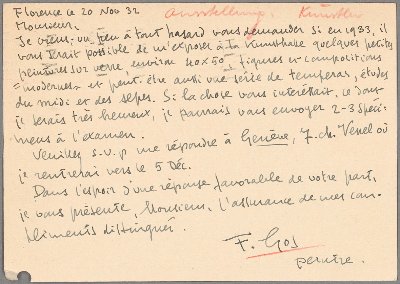 Florence le 20 Nov 32
Ausstellung. Künstler
Monsieur,
Je viens un peu à tout hasard vous demander si en 1933, il
vous serait possible de m'exposer à la Kunsthalle quelques petites
peintures sur verre environ 40x50 figures et compositions
"modernes" et peut-être aussi une série de temperas, études
du midi et des alpes. Si la chose vous intéressait, ce dont
je serais très heureux, je pourrais vous envoyer 2-3 spéci-
mens à l'examen.
Veuillez s.v.p me répondre à Genève, 7. ch. Venel où
je rentrerai vers le 5 Déc.
Dans l'espoir d'une réponse favorable de votre part,
je vous présente, Monsieur, l'assurance de mes com-
pliments distingués.
F. Gos
peintre.